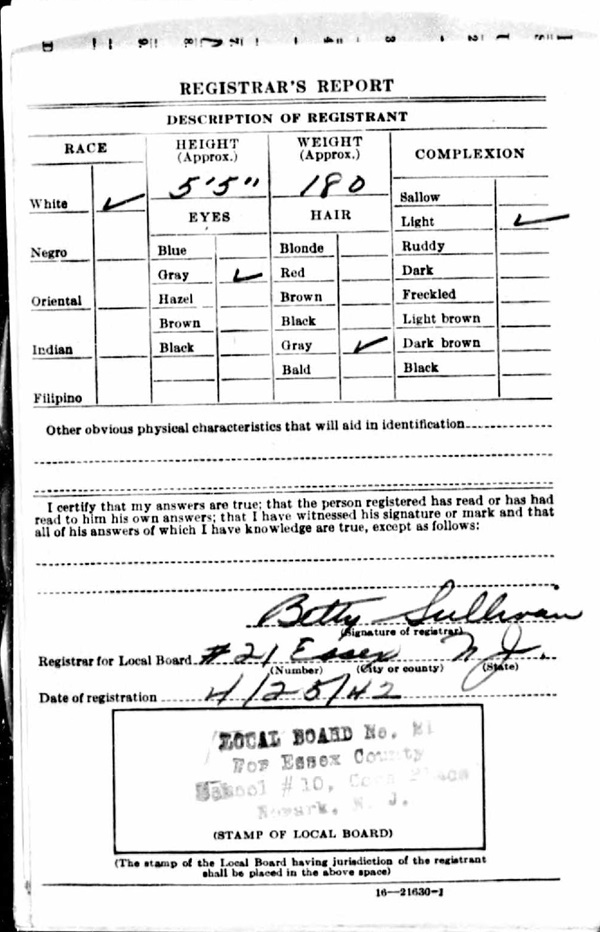 REGISTRAR'S REPORT
DESCRIPTION OF REGISTRANT
RACE
HEIGHT
(Approx.)
WEIGHT
(Approx.)
COMPLEXION
5'5"
180
White ✓
EYES
HAIR
Sallow
Light ✓
Negro
Blue
Blonde
Ruddy
Gray ✓
Red
Dark
Oriental
Hazel
Brown
Freckled
Brown
Black
Light brown
Indian
Black
Gray ✓
Dark brown
Bald
Black
Filipino
Other obvious physical characteristics that will aid in identification
I certify that my answers are true; that the person registered has read or has had
read to him his own answers; that I have witnessed his signature or mark and that
all of his answers of which I have knowledge are true, except as follows:
Betty Sullivan
(Signature of registrar)
Registrar for Local Board #21 Essex N.J.
(Number) (City or county) (State)
Date of registration 4/25/42
LOCAL BOARD No.
For Essex County
School #10,
Newark, N. J.
(STAMP OF LOCAL BOARD)
(The stamp of the Local Board having jurisdiction of the registrant
shall be placed in the above space)
16—21630-1